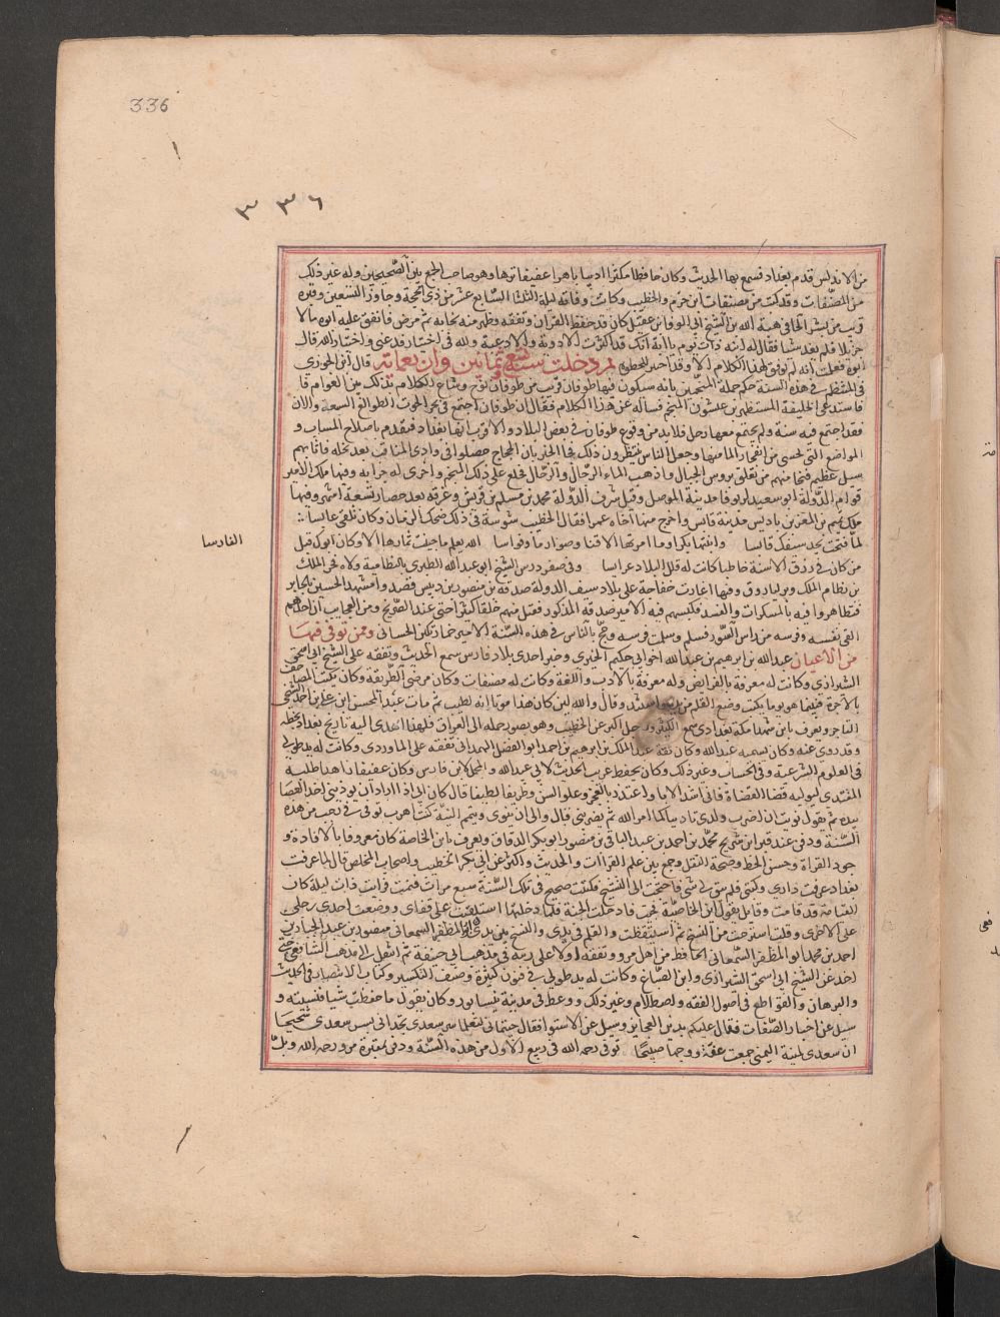 336
٣٣٦
من الاندلس قدم بغداد فسمع بها الحديث وكان حافظا مكثرا اديبا ماهرا عفيفا نزها وهو صاحب الجمع بين الصحيحين وله غير ذلك
من المصنفات وقد كتب من مصنفات ابن حزم والخطيب وكانت وفاته ليلة الثلثا السابع عشر من ذى الحجة وجاوز التسعين وقبره
قريب من بشر الحافى هبة الله بن الشيخ ابى الوفا بن عقيل كان قد حفظ القران وتفقه وظهر منه نجابه ثم مرض فانفق عليه ابوه مالا
جزيلا فلم يفد شيا فقال له ابنه ذات يوم يا ابة انك قد اكثرت الادوية والادعية ولله فى اختيار فدعنى واختيار الله قال
ابوه فعلمت انه لم يوفق لهذا الكلام الا وقد اختير للحظوة ثم دخلت سنة تسع وثمانين واربعمائه قال ابن الجوزى
فى المنتظم فى هذه السنة حكم جهلة المنجمين بانه سيكون فيها طوفان قريب من طوفان نوح وشاع الكلام بذلك بين العوام
فاستدعى الخليفة المستظهر بن عيشون المنجم فساله عن هذا الكلام فقال ان طوفان اجتمع فى برج الحوت الطوالع السبعة والان
فقد اجتمع فيه ستة ولم يجتمع معها زحل فلا بد من وقوع طوفان فى بعض البلاد والاقرب انها بغداد فتقدم باصلاح المسنيات و
المواضع التى يخشى من انفجار الما منها وجعل الناس ينتظرون ذلك فجا الخبر بان الحجاج حصلوا فى وادى المناقب بعد نخله فاتاهم
سيل عظيم فنجا منهم من تعلق بروس الجبال واذهب الماء الرحال والرجال فخلع على ذلك المنجم واجرى له جرايه وفيها ملك الامير
قوام الدولة ابو سعيد كربوقا مدينة الموصل وقتل شرف الدولة محمد بن مسلم بن قريش وغرقه بعد حصار تسعة اشهر وفيها
ملك تميم بن المعز بن باديس مدينة قابس واخرج منها اخاه عمر فقال الخطيب سوسة فى ذلك ضحك الزمان وكان يلقى عابسا
لما فتحت بحد سيفك قابسا وانكحتها بكرا وما امهرتها الا قنا وصوارما وفوارسا الله يعلم ما جنيت ثمارها الا وكان ابوك قبل
الغارسا
من كان فى زرق الاسنة خاطبا كانت له قلل البلاد عرايسا وفى صفر درس الشيخ ابو عبد الله الطبرى بالنظامية ولاه فخر الملك
بن نظام الملك وزير وفيها اغارت خفاجة على بلاد سيف الدولة صدقة بن منصور بن دبيس فقصدوا مشهد الحسين بالحاير
فتظاهروا فيه بالمنكرات والفسد فكبسهم فيه الامير صدقه المذكور فقتل منهم خلقا كثيرا حتى عند الضريح ومن العجايب ان احدهم
القى نفسه وفرسه من راس السور فسلم وسلمت فرسه وحج بالناس فى هذه السنة الامير خمارتكين الحسنانى وممن توفى فيها
من الاعيان عبد الله بن ابرهيم بن عبد الله اخو ابى حكيم الخبرى وخبر احدى بلاد فارس سمع الحديث وتفقه على الشيخ ابى اسحق
الشيرازى وكانت له معرفة بالفرايض وله معرفة بالادب واللغة وكانت له مصنفات وكان مرضى الطريقة وكان يكتب المصاحف
بالاجرة فبينما هو يوما يكتب وضع القلم من يده واستند وقال والله لين كان هذا موتا انه لطيب ثم مات عبد المحسن ابن على بن احمد الشيحى
التاجر ويعرف بابن شهدا مكة بغدادى سمع الكثير ورحل اكثر عن الخطيب وهو بصور حمله الى العراق فلهذا اهدى اليه تاريخ بغداد بخطه
وقد روى عنه وكان يسميه عبد الله وكان ثقة عبد الملك بن ابرهيم بن احمد ابو الفضل الهمدانى تفقه على الماوردى وكانت له يد طولى
فى العلوم الشرعية وفى الحساب وغير ذلك وكان يحفظ غريب الحديث لابى عبد الله والمجمل لابن فارس وكان عفيفا زاهدا طلبه
المقتدى ليوليه قضا القضاة فابى اشد الابا واعتذر بالعجز وعلو السن وظريفا لطيفا قال كان ابى اذا اراد ان يؤدبنى اخذ العصا
بيده ثم يقول نويت ان اضرب ولدى تاديبا كما امر الله ثم يضربنى قال والى ان ينوى ويتم النية كنت اهرب توفى فى رجب من هذه
السنة ودفن عند قبر ابن شريح محمد بن احمد بن عبد الباقى بن منصور ابو بكر الدقاق ويعرف بابن الخاصة كان معروفا بالافادة و
جودة القراة وحسن الخط وصحة النقل وجمع بين علم القراات والحديث واكثر عن ابى بكر الخطيب واصحاب المخلص قال لما غرقت
بغداد غرقت دارى وكتبى فلم يبق لى شى فاحتجت الى النسخ فكتبت صحيح فى تلك السنة سبع مرات فنمت فرايت ذات ليلة كان
القيامة قد قامت وقايل يقول ابن الخاصة فجيت فادخلت الجنة فلما دخلتها استلقيت على قفاى ووضعت احدى رجلى
على الاخرى وقلت استرحت من النسخ ثم استيقظت والقلم فى يدى والنسخ بين يدى ابو المظفر السمعانى منصور بن عبد الجبار بن
احمد بن محمد ابو المظفر السمعانى الحافظ من اهل مرو وتفقه اولا على ابيه فى مذهب ابى حنيفة ثم انتقل الى مذهب الشافعى حتى
اخذ عن الشيخ ابى اسحق الشيرازى وابن الصباغ وكانت له يد طولى فى فنون كثيرة وصنف التفسير وكتاب الانتصار فى الحديث
والبرهان والقواطع فى اصول الفقه والاصطلام وغير ذلك ووعظ فى مدينة نيسابور وكان يقول ما حفظت شيا فنسيته و
سيل عن اخبار الصفات فقال عليكم بدين العجايز وسيل عن الاستوا فقال جيتمانى لتعلما سر سعدى تجدانى بسر سعدى شحيحا
ان سعدى لمنية المتمنى جمعت عفة ووجها صبيحا توفى رحمه الله فى ربيع الاول من هذه السنة ودفن بمقبرة مرو رحمه الله